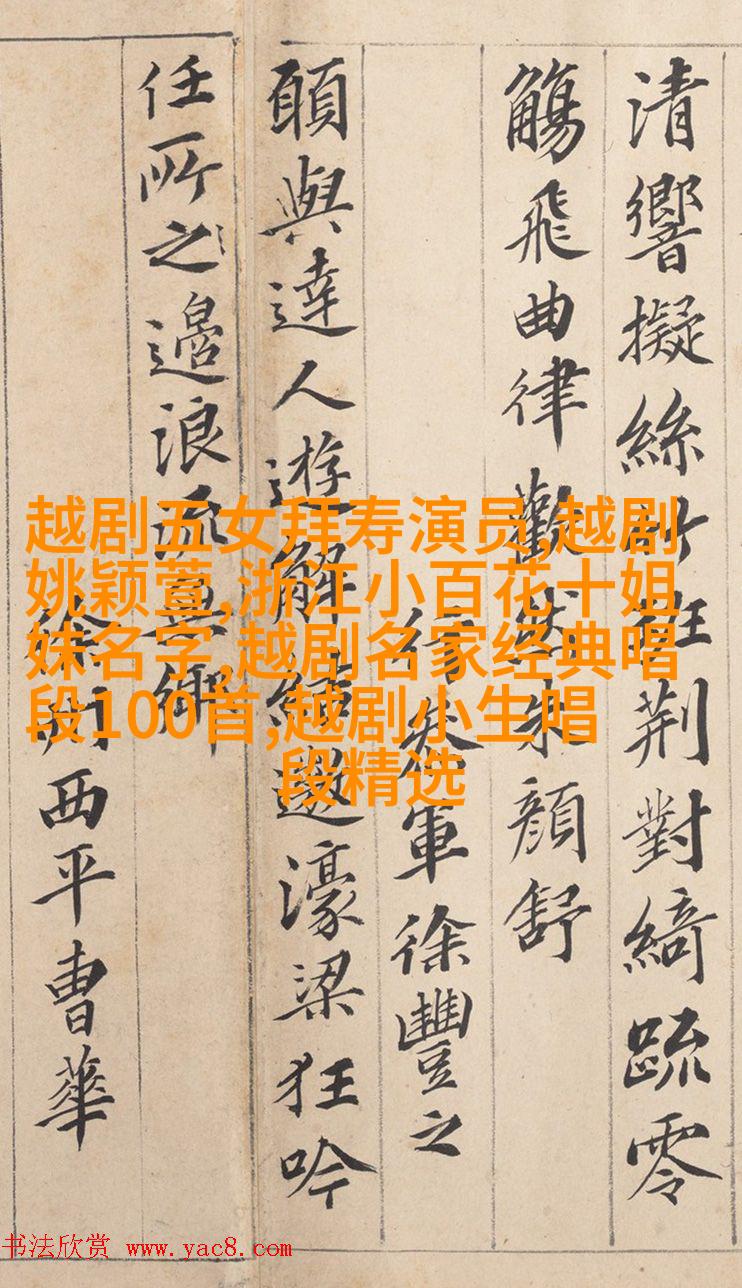 清響擬絲竹班荊對綺疏零
觴飛曲律歡然朱顏舒
行參軍徐豐之
願與達人遊解結遨濠梁狂吟
任所之浪流無鄉
徐州西平曹華
越剧五女拜寿演员,越剧
姚颖萱,浙江小百花十姐
妹名字,越剧名家经典唱
段100首,越剧小生唱
段精选
书法欣赏 www.yac8.com